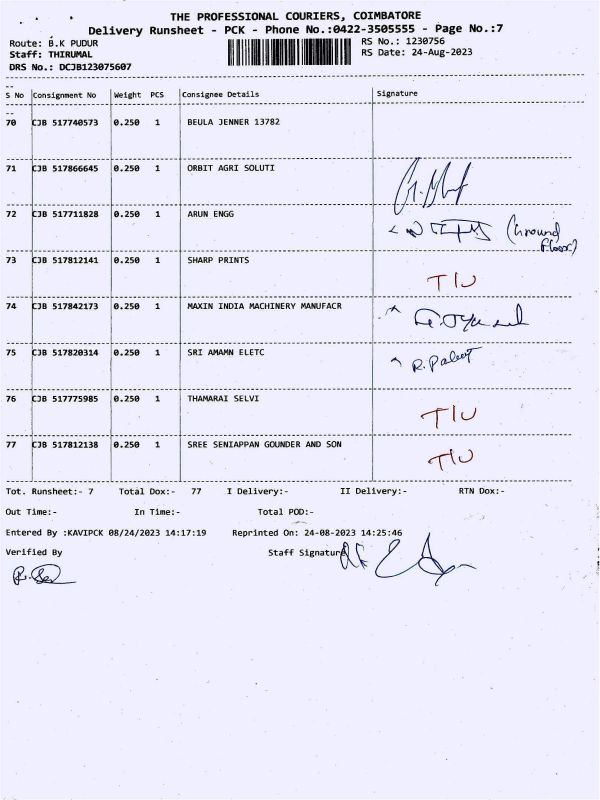 THE PROFESSIONAL COURIERS, COIMBATORE
Delivery Runsheet - PCK - Phone No.:0422-3505555 - Page No.:7
Route: B.K PUDUR RS No.: 1230756
Staff: THIRUMAL RS Date: 24-Aug-2023
DRS No.: DCJB123075607
S No Consignment No Weight PCS Consignee Details Signature
70 CJB 517740573 0.250 1 BEULA JENNER 13782
71 CJB 517866645 0.250 1 ORBIT AGRI SOLUTI
72 CJB 517711828 0.250 1 ARUN ENGG (Ground Floor)
73 CJB 517812141 0.250 1 SHARP PRINTS
TIU
74 CJB 517842173 0.250 1 MAXIN INDIA MACHINERY MANUFACR
75 CJB 517820314 0.250 1 SRI AMAMN ELETC
76 CJB 517775985 0.250 1 THAMARAI SELVI
TIU
77 CJB 517812138 0.250 1 SREE SENIAPPAN GOUNDER AND SON
TIU
Tot. Runsheet:- 7 Total Dox:- 77 I Delivery:- II Delivery:- RTN Dox:-
Out Time:- In Time:- Total POD:-
Entered By :KAVIPCK 08/24/2023 14:17:19 Reprinted On: 24-08-2023 14:25:46
Verified By Staff Signature